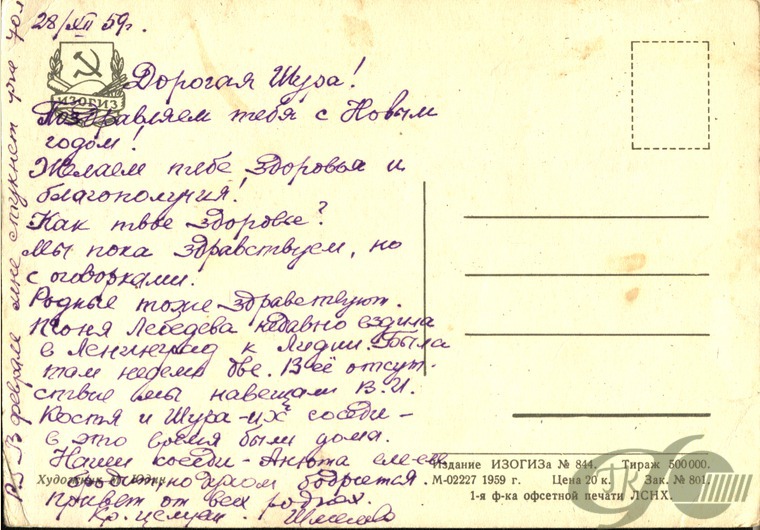 28/XII 59г.
ИЗОГИЗ
Дорогая Шура!
Поздравляем тебя с Новым
годом!
Желаем тебе здоровья и
благополучия!
Как твое здоровье?
Мы пока здравствуем, но
с оговорками.
Родные тоже здравствуют.
Тоня Лебедева недавно ездила
в Ленинград к Лидии. Была
там недели две. В её отсут-
ствие мы навещали В.И.
Костя и Шура – их соседи –
в это время были дома.
Наши соседи – Анюта
бодрится
привет от всех родных.
Кр. целуем.
P.S. В феврале мне стукнет
Художник
Издание ИЗОГИЗа № 844. Тираж 500 000.
М-02227 1959 г. Цена 20 к. Зак. № 801.
1-я ф-ка офсетной печати ЛСНХ.